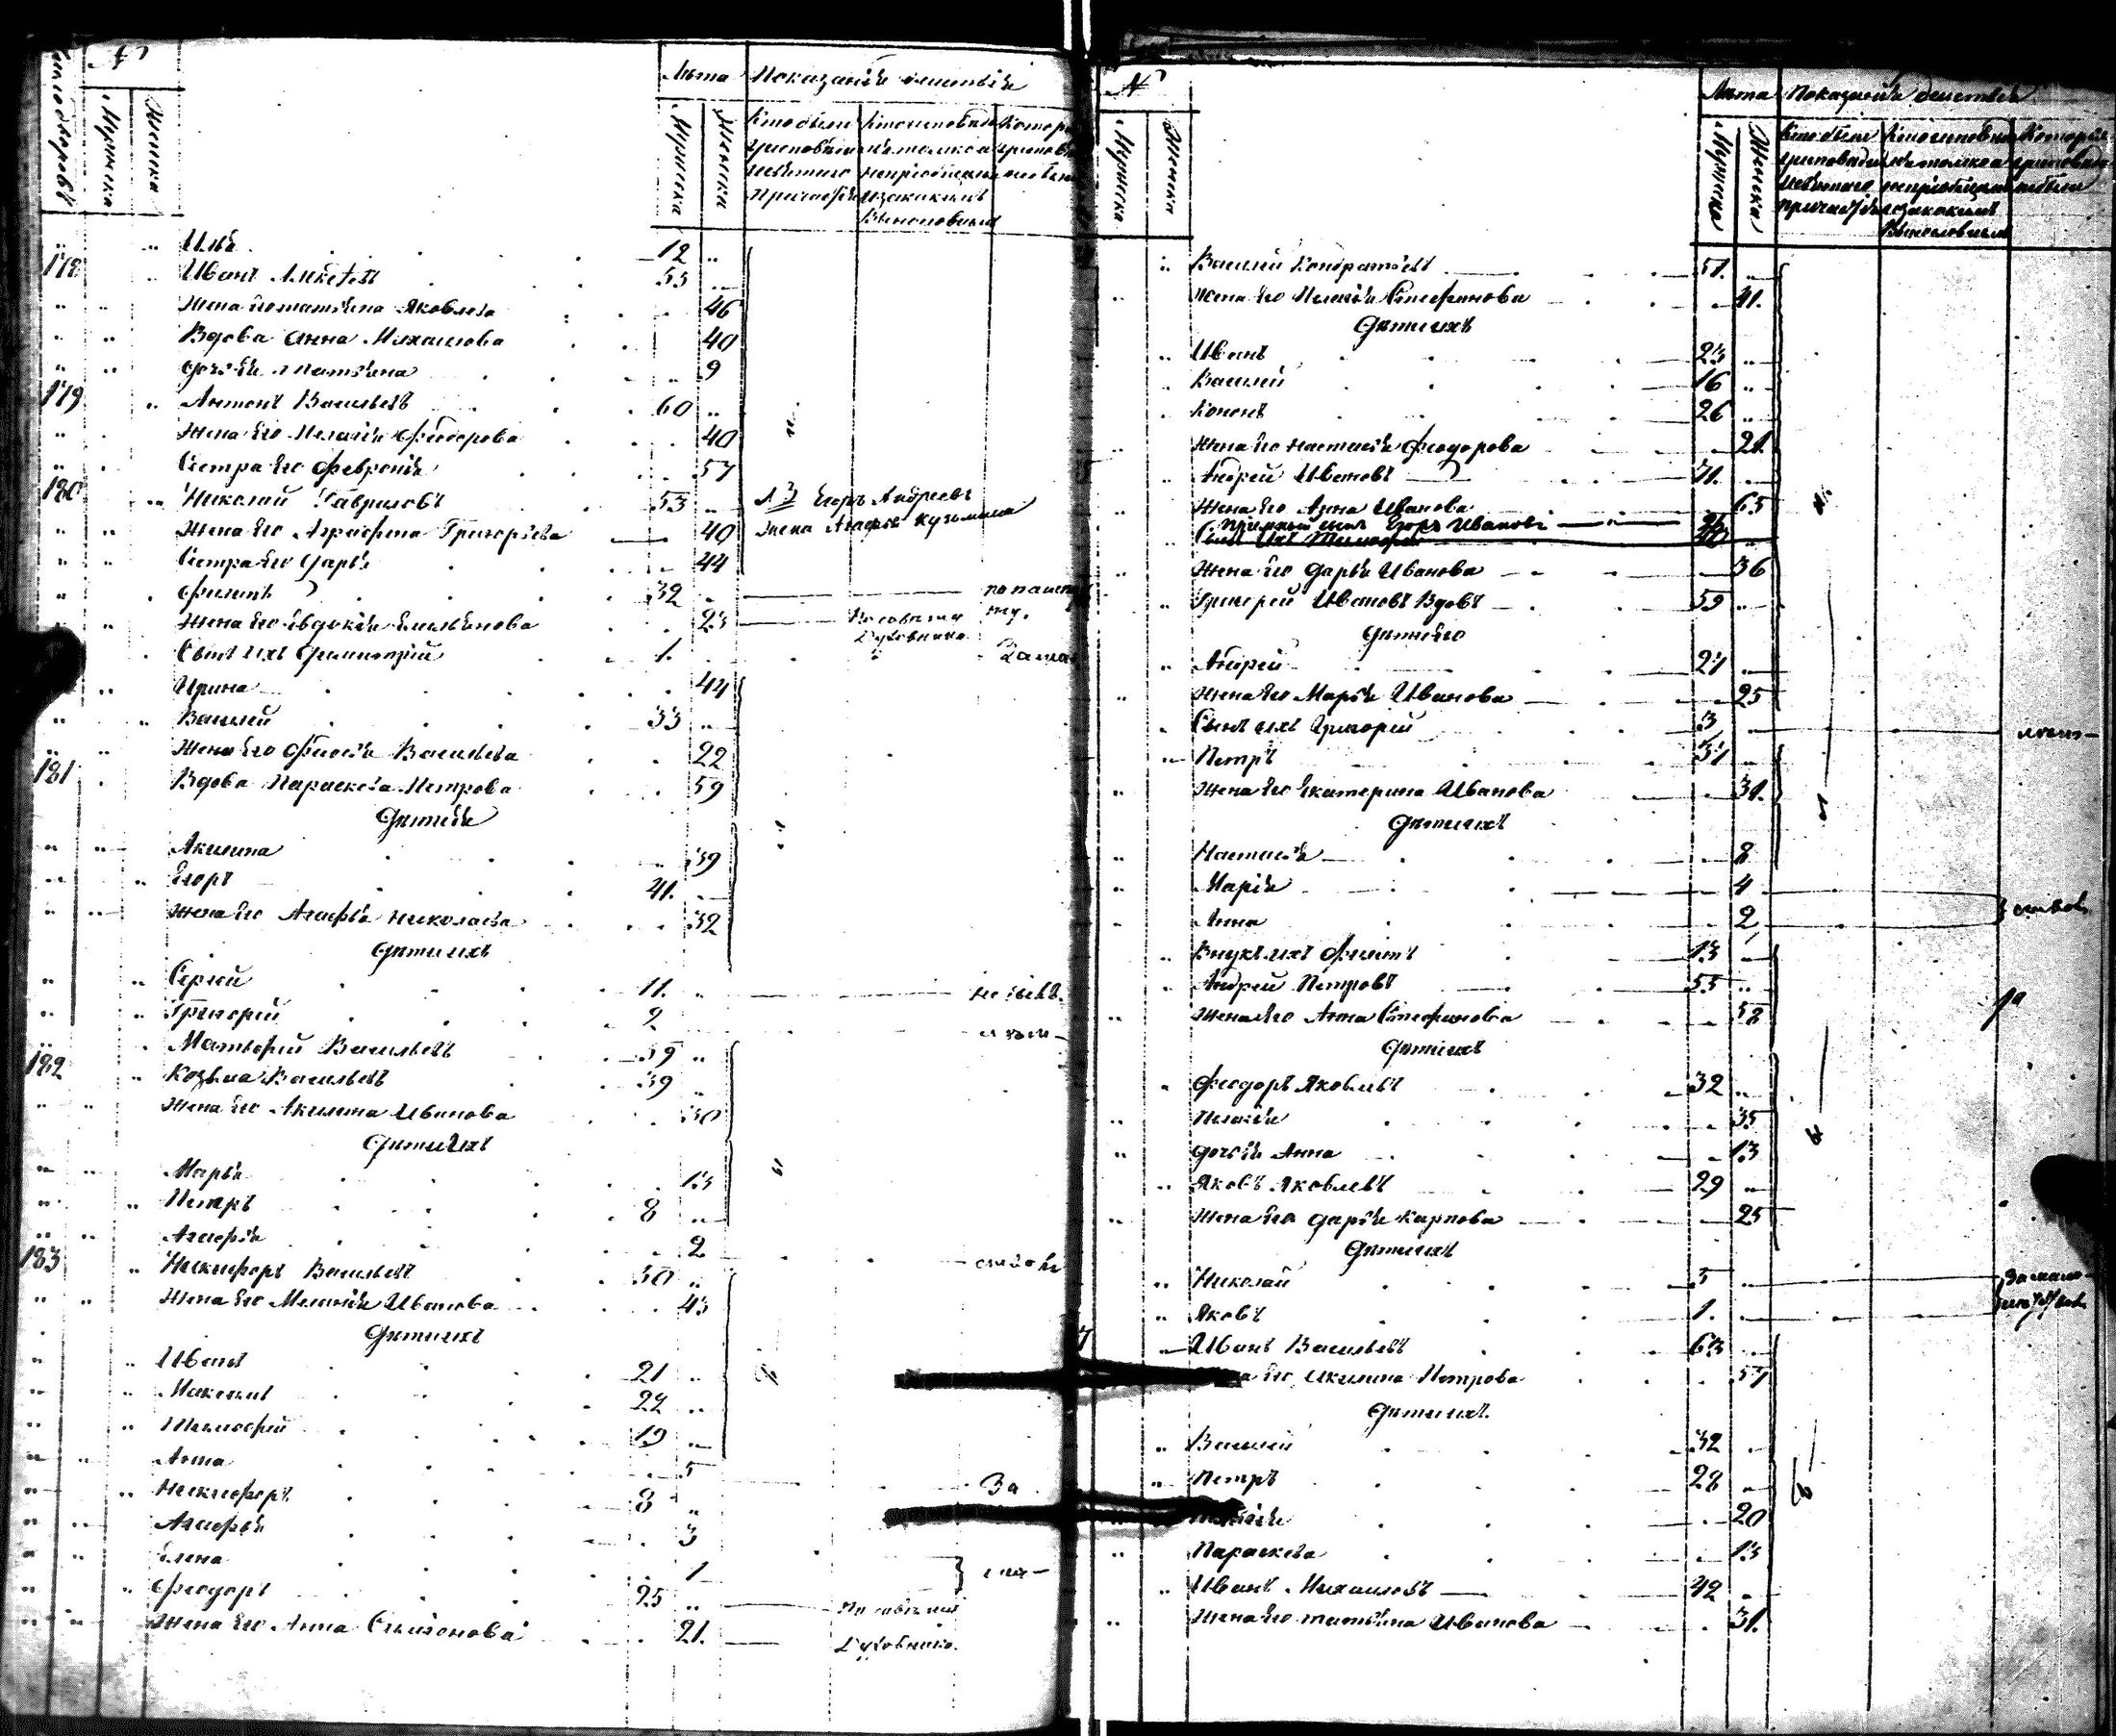 №
Число дворовъ
Мужеска
Женска
Лѣта
Показанія бытія
Мужеска
Женска
Кто были у исповѣди и святаго причастія
Кто исповѣдались токмо а не пріобщались и за какимъ винословіемъ
Которые у исповѣди не были
Илья 12
178 Иванъ Алексѣевъ 55
Жена его татьяна Яковлева 46
Вдова Анна Михаилова 40
дочь ея татьяна 9
179 Антонъ Васильевъ 60
Жена его Пелагія Федорова 40
Сестра его Февронія 57
180 Николай Гавриловъ 53
№ 3 Егоръ Андреевъ
Жена его Аграфена Григорьева 40
Жена Агафья Кузьмина
Сестра его Дарья 44
Филипъ 32 по пашпорту.
Жена его Евдокія Емельянова 23 По совѣту Духовника
Сынъ ихъ Димитрій 1. За мал
Ирина 44
Василій 33
Жена его Васильева 22
181 Вдова Параскева Петрова 59
Дѣти ея
Акилина 39
Егоръ 41.
Жена его Агафья Николаева 32
Дѣти ихъ
Сергей 11.
Григорій 2
Васильевъ 59
182 Козьма Васильевъ 39
Жена его Акилина Иванова 30
Дѣти ихъ
Марья 13
Петръ 8
Агафія 2
183 Никифоръ Васильевъ 50
Жена его Меланія Иванова 43
Дѣти ихъ
Иванъ 21
Максимъ 22
Тимофей 19
Анна 5
Никифоръ 8 За
Агафья 3
Елена 1
Феодоръ 25 По совѣту
Жена его Анна Симеонова 21. Духовника.
№
Мужеска
Женска
Лѣта
Показанія бытія
Мужеска
Женска
Кто были у исповѣди и святаго причастія
Кто исповѣдались токмо а не пріобщались и за какимъ винословіемъ
Которые у исповѣди не были
Василій Кондратьевъ 51.
Жена его Пелагія Стефанова 41.
Дѣти ихъ
Иванъ 23
Василій 16
Кононъ 26
Жена его Настасія Феодорова 21.
Андрей Ивановъ 71.
Жена его Анна Иванова 65
Пріимный сынъ Егоръ Ивановъ
Сынъ ихъ Тимофей
Жена его Дарья Иванова 36
Григорей Ивановъ Вдовъ 59
Дѣти его
Андрей 27
Жена его Марія Иванова 25
Сынъ ихъ Григорій 3
Петръ 37
Жена его Екатерина Иванова 31.
Дѣти ихъ
Настасія 8
Марія 4
Анна 2
Внукъ ихъ Филипъ 13
Андрей Петровъ 55
Жена его Анна Стефанова 58
Дѣти ихъ
Феодоръ Яковлевъ 32
Пелагія 35
дочь ея Анна 13
Яковъ Яковлевъ 29
Жена его Дарія Карпова 25
Дѣти ихъ
Николай 5
Яковъ 1.
Иванъ Васильевъ 63
его Акилина Петрова 57
Дѣти ихъ.
Василій 32
Петръ 28
20
Параскева 13
Иванъ Михаиловъ 42
Жена его татьяна Иванова 31.